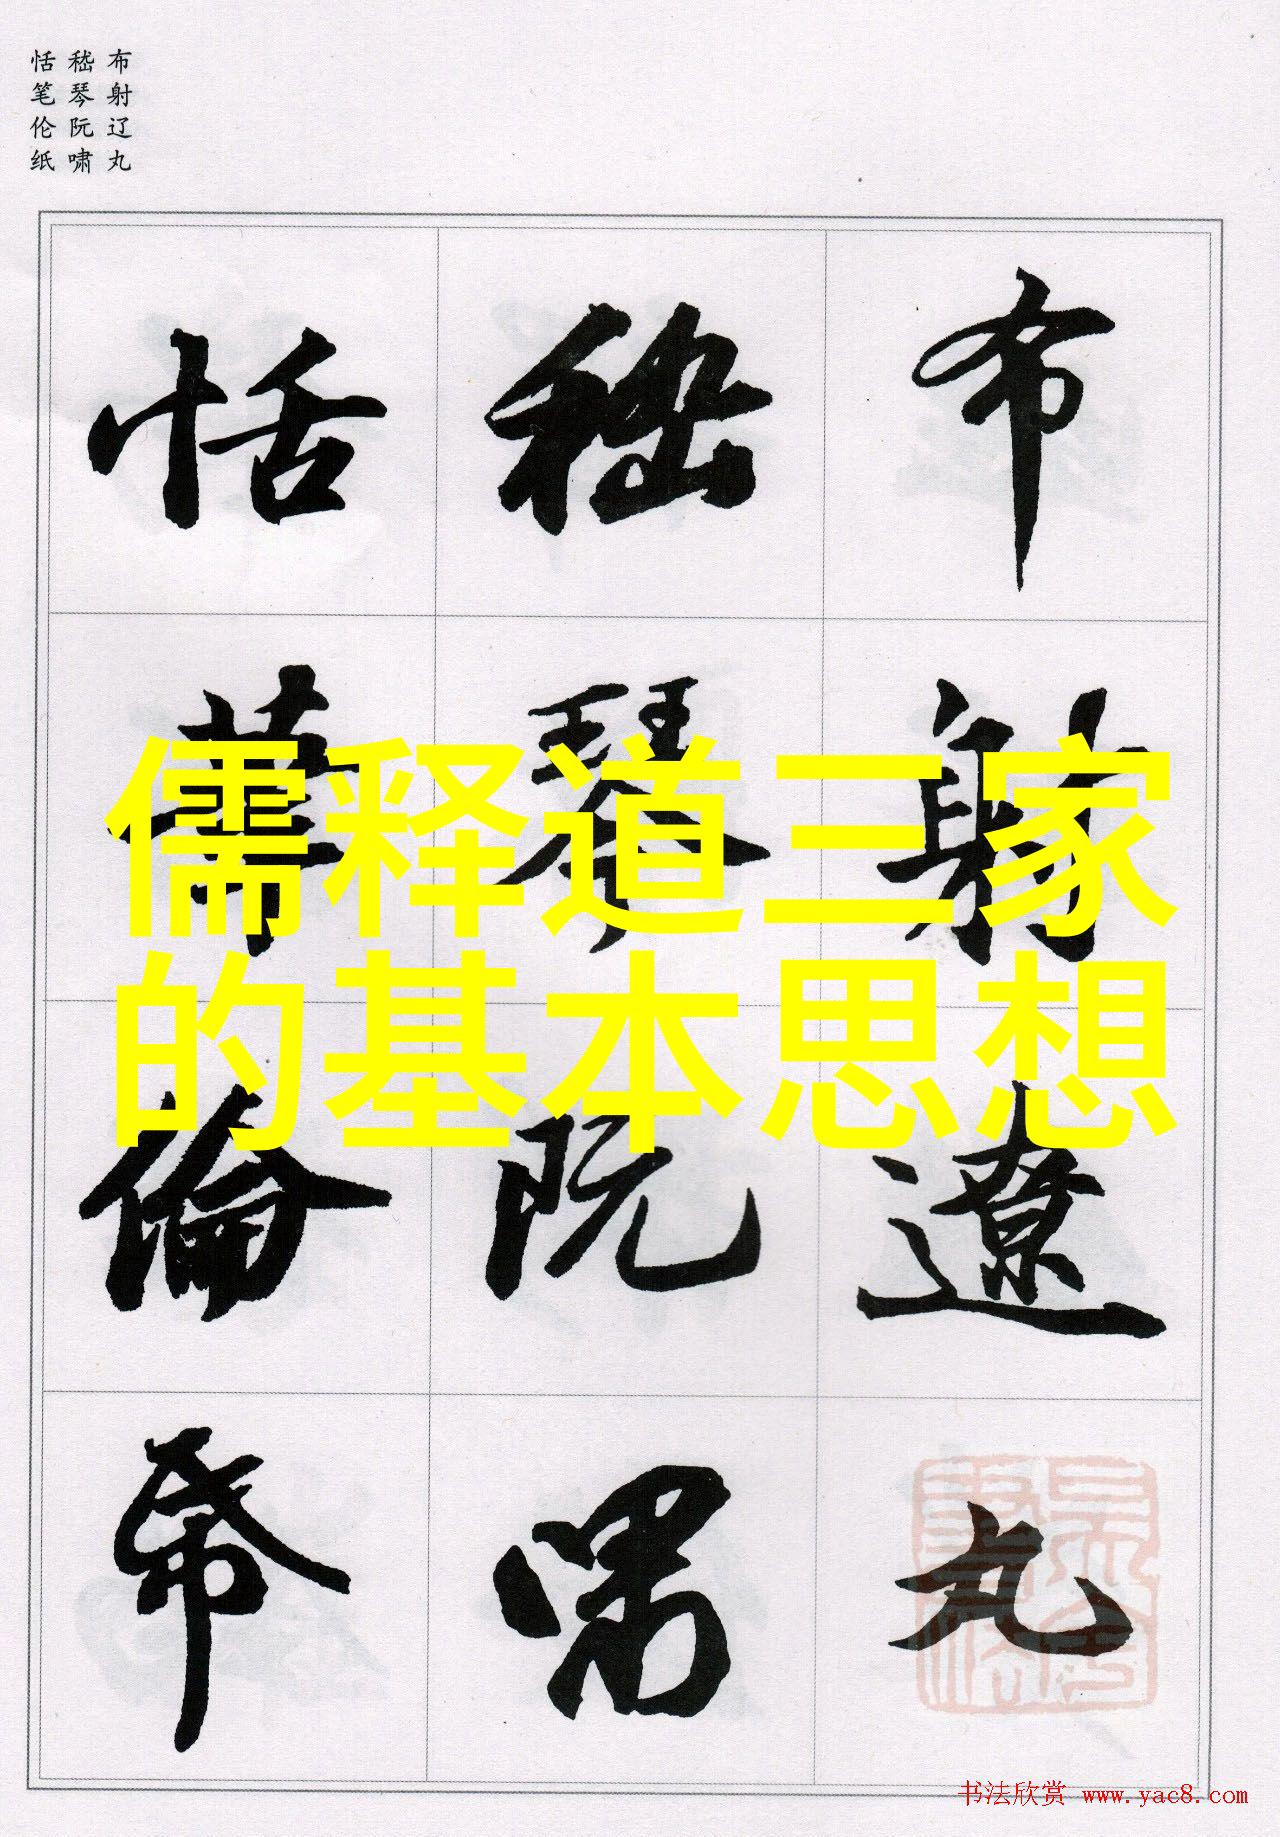 布射辽丸
嵇琴阮啸
恬笔伦纸
布射遼丸
嵇琴阮嘯
恬筆倫帋
儒释道三家
的基本思想
书法欣赏 www.yac8.com